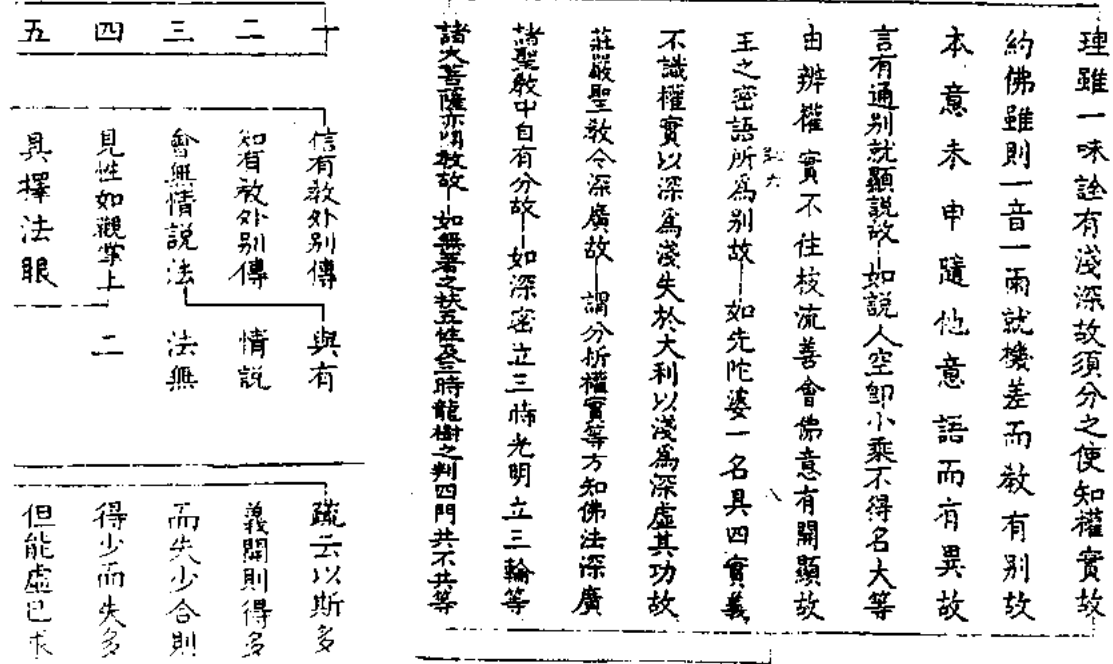 理雖一味詮有淺深故須分之使知權實故
約佛雖則一音一雨就機差而教有別故
本意未申隨他意語而有異故
言有通別就顯說故—如說人空卽小乘不得名大等
由辨權實不住枝流善會佛意有開顯故
王之密語所爲別故—如先陀婆一名具四實義
不識權實以深爲淺失於大利以淺爲深虛其功故
莊嚴聖教令深廣故—謂分折權實等方知佛法深廣
諸聖教中自有分故—如深密立三時光明立三輪等
諸大菩薩亦判教故—如無著之扶五性及三時龍樹之判四門共不共等
十
二
三
四
五
信有教外別傳
知有教外別傳
會無情說法
見性如觀掌上
具擇法眼
與有
情說
法無
二
疏云以斯多
義開則得多
而失少合則
得少而失多
但能虛已求